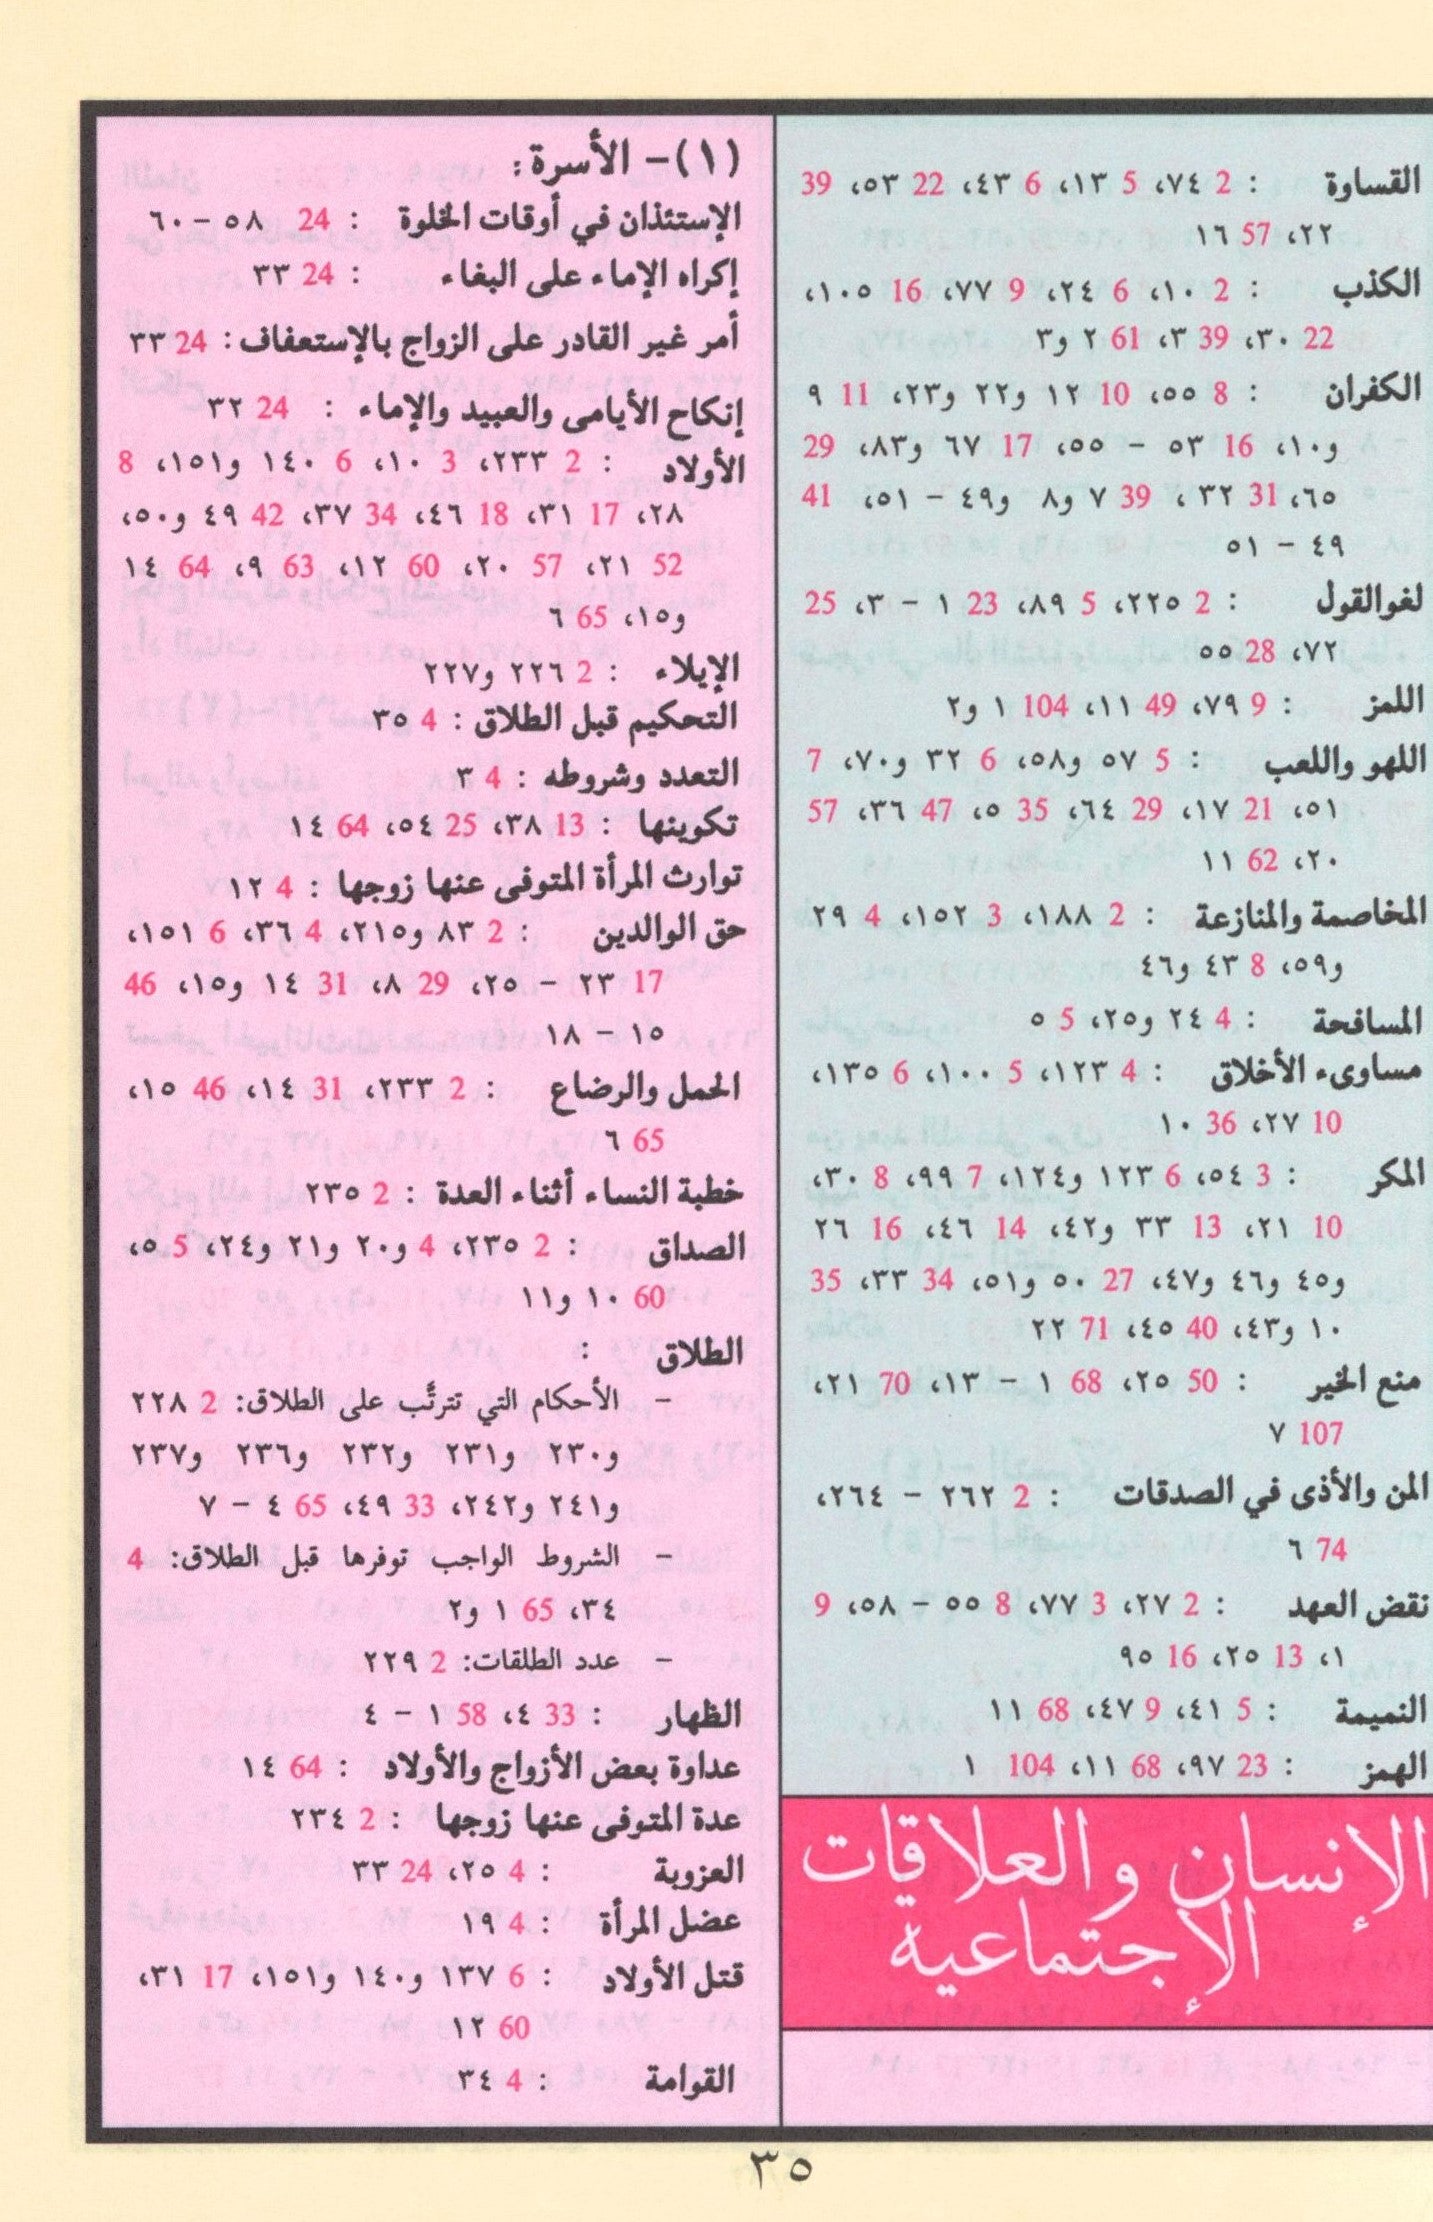 القساوة : 2 ٧٤، 5 ١٣، 6 ٤٣، 22 ٥٣، 39
٢٢، 57 ١٦
الكذب : 2 ١٠، 6 ٢٤، 9 ٧٧، 16 ١٠٥،
22 ٣٠، 39 ٣، 61 ٢ و٣
الكفران : 8 ٥٥، 10 ١٢ و٢٢ و٢٣، 11 ٩
و١٠، 16 ٥٣ – ٥٥، 17 ٦٧ و٨٣، 29
٦٥، 31 ٣٢، 39 ٧ و٨ و٤٩ – ٥١، 41
٤٩ – ٥١
لغو القول : 2 ٢٢٥، 5 ٨٩، 23 ١ – ٣، 25
٧٢، 28 ٥٥
اللمز : 9 ٧٩، 49 ١١، 104 ١ و٢
اللهو واللعب : 5 ٥٧ و٥٨، 6 ٣٢ و٧٠، 7
٥١، 21 ١٧، 29 ٦٤، 35 ٥، 47 ٣٦، 57
٢٠، 62 ١١
المخاصمة والمنازعة : 2 ١٨٨، 3 ١٥٢، 4 ٢٩
و٥٩، 8 ٤٣ و٤٦
المسافحة : 4 ٢٤ و٢٥، 5 ٥
مساوىء الأخلاق : 4 ١٢٣، 5 ١٠٠، 6 ١٣٥،
10 ٢٧، 36 ١٠
المكر : 3 ٥٤، 6 ١٢٣ و١٢٤، 7 ٩٩، 8 ٣٠،
10 ٢١، 13 ٣٣ و٤٢، 14 ٤٦، 16 ٢٦
و٤٥ و٤٦ و٤٧، 27 ٥٠ و٥١، 34 ٣٣، 35
١٠ و٤٣، 40 ٤٥، 71 ٢٢
منع الخير : 50 ٢٥، 68 ١ – ١٣، 70 ٢١،
107 ٧
المن والأذى في الصدقات : 2 ٢٦٢ – ٢٦٤،
74 ٦
نقض العهد : 2 ٢٧، 3 ٧٧، 8 ٥٥ – ٥٨، 9
١، 13 ٢٥، 16 ٩٥
النميمة : 5 ٤١، 9 ٤٧، 68 ١١
الهمز : 23 ٩٧، 68 ١١، 104 ١
الإنسان والعلاقات
الإجتماعية
(١)– الأسرة :
الإستئذان في أوقات الخلوة : 24 ٥٨ – ٦٠
إكراه الإماء على البغاء : 24 ٣٣
أمر غير القادر على الزواج بالإستعفاف : 24 ٣٣
إنكاح الأيامى والعبيد والإماء : 24 ٣٢
الأولاد : 2 ٢٣٣، 3 ١٠، 6 ١٤٠ و١٥١، 8
٢٨، 17 ٣١، 18 ٤٦، 34 ٣٧، 42 ٤٩ و٥٠،
52 ٢١، 57 ٢٠، 60 ١٢، 63 ٩، 64 ١٤
و١٥، 65 ٦
الإيلاء : 2 ٢٢٦ و٢٢٧
التحكيم قبل الطلاق : 4 ٣٥
التعدد وشروطه : 4 ٣
تكوينها : 13 ٣٨، 25 ٥٤، 64 ١٤
توارث المرأة المتوفى عنها زوجها : 4 ١٢
حق الوالدين : 2 ٨٣ و٢١٥، 4 ٣٦، 6 ١٥١،
17 ٢٣ – ٢٥، 29 ٨، 31 ١٤ و١٥، 46
١٥ – ١٨
الحمل والرضاع : 2 ٢٣٣، 31 ١٤، 46 ١٥،
65 ٦
خطبة النساء أثناء العدة : 2 ٢٣٥
الصداق : 2 ٢٣٥، 4 و٢٠ و٢١ و٢٤، 5 ٥،
60 ١٠ و١١
الطلاق :
– الأحكام التي تترتَّب على الطلاق: 2 ٢٢٨
و٢٣٠ و٢٣١ و٢٣٢ و٢٣٦ و٢٣٧
و٢٤١ و٢٤٢، 33 ٤٩، 65 ٤ – ٧
– الشروط الواجب توفرها قبل الطلاق: 4
٣٤، 65 ١ و٢
– عدد الطلقات: 2 ٢٢٩
الظهار : 33 ٤، 58 ١ – ٤
عداوة بعض الأزواج والأولاد : 64 ١٤
عدة المتوفى عنها زوجها : 2 ٢٣٤
العزوبة : 4 ٢٥، 24 ٣٣
عضل المرأة : 4 ١٩
قتل الأولاد : 6 ١٣٧ و١٤٠ و١٥١، 17 ٣١،
60 ١٢
القوامة : 4 ٣٤
٣٥